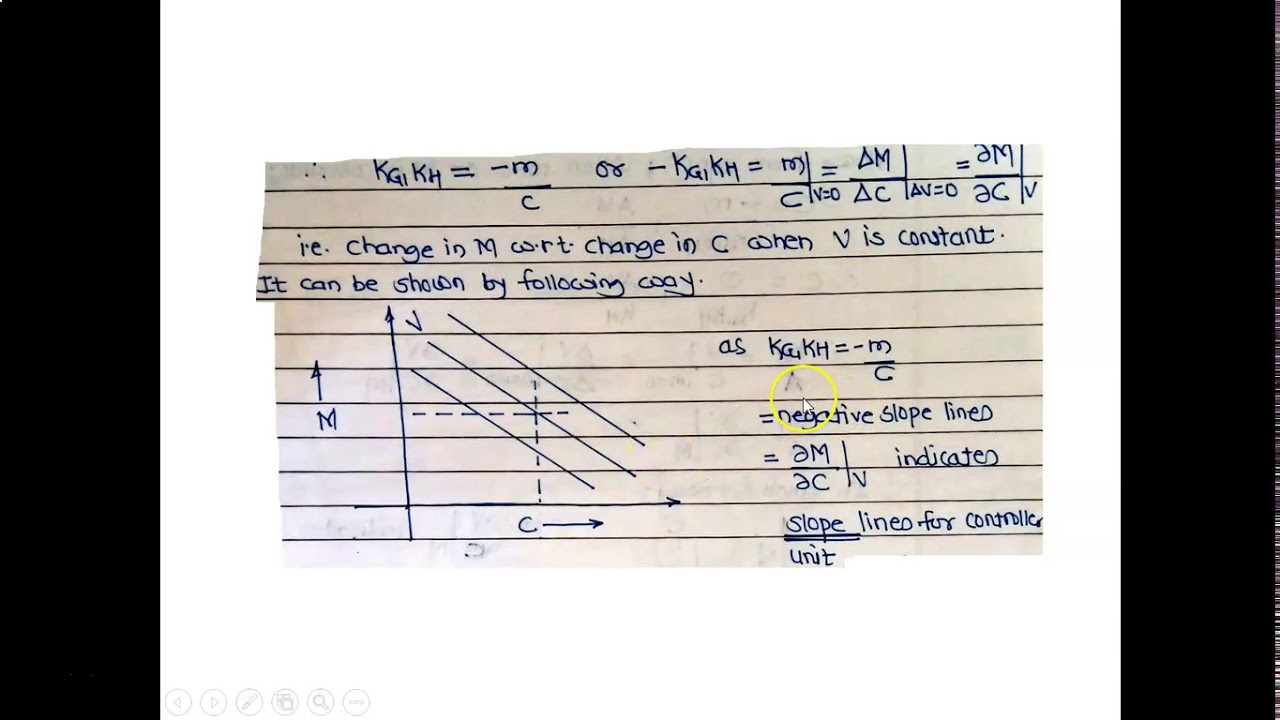 ∴ KG1 KH = -m/C or - KG1 KH = m/C|V=0 = ΔM/ΔC|ΔV=0 = ∂M/∂C|V
i.e. change in M w.r.t. change in C when V is constant.
It can be shown by following way.
V
M
C
as KG1 KH = -m/C
= negative slope lines
= ∂M/∂C|V indicates
slope lines for controller
unit